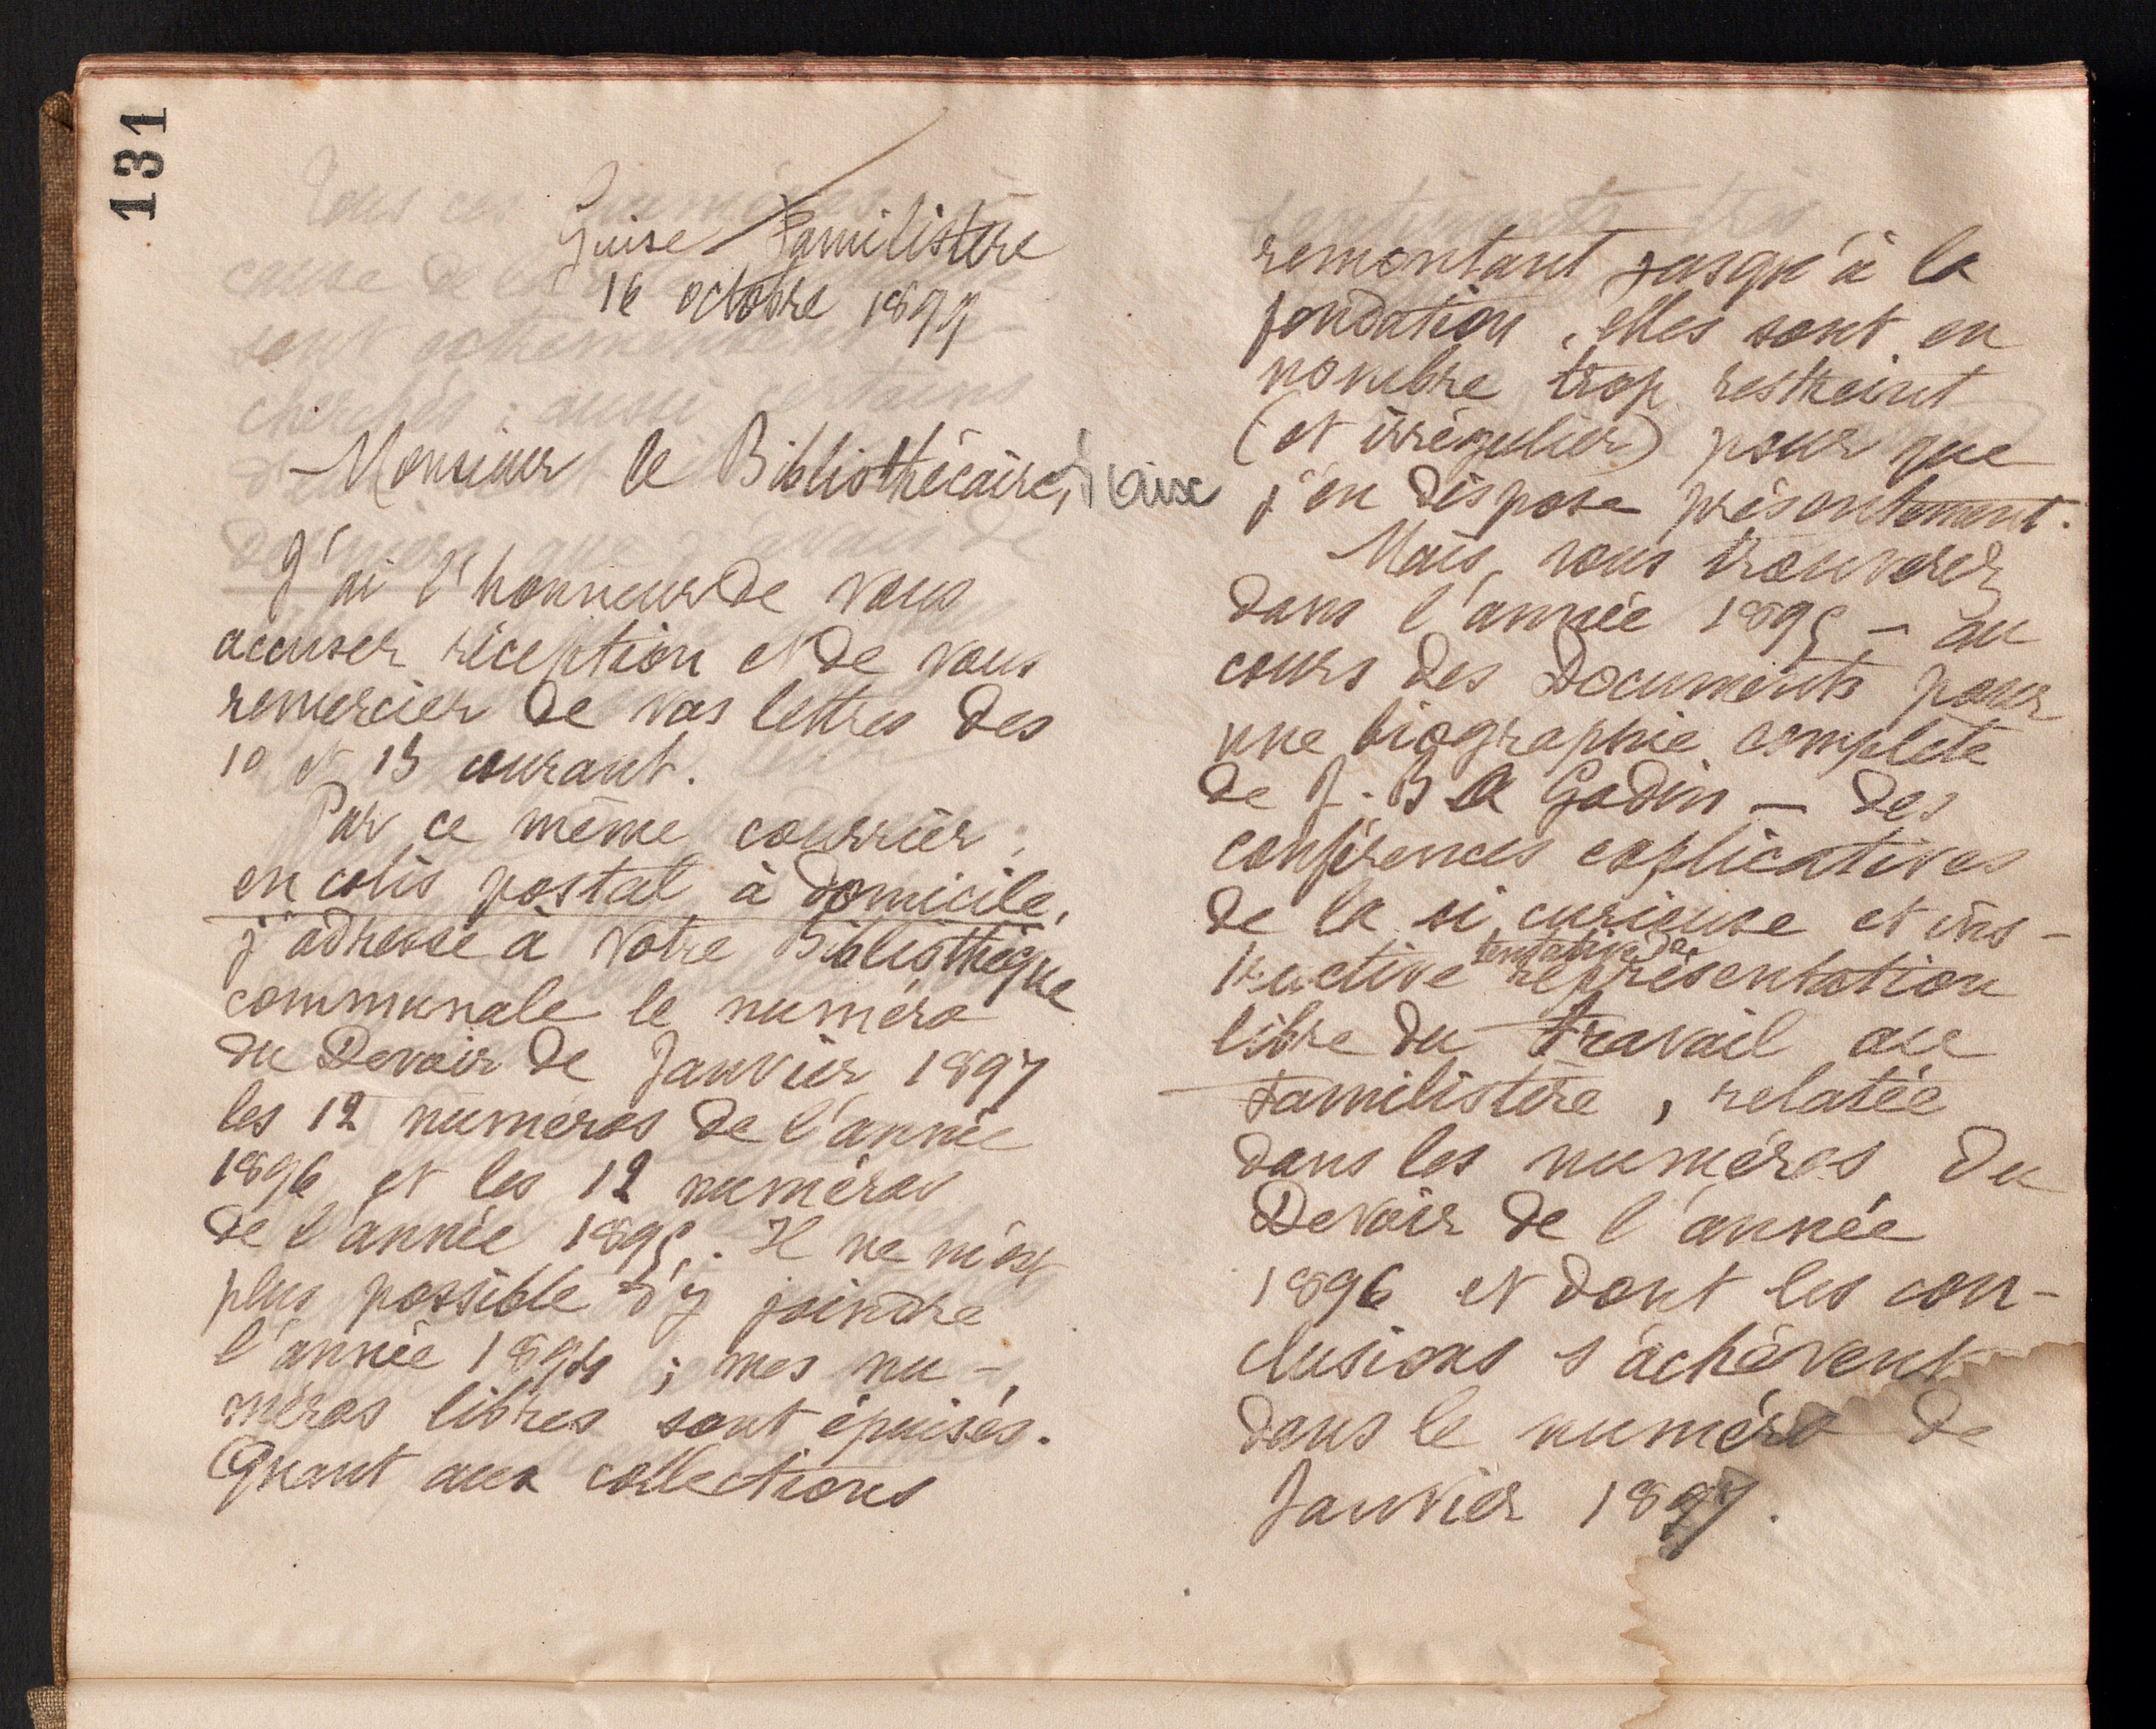 131
Guise Familistère
16 octobre 1897
Monsieur le Bibliothécaire,
J'ai l'honneur de vous
accuser réception et de vous
remercier de vos lettres des
10 et 15 courant.
Par ce même courrier,
en colis postal à domicile,
j'adresse à votre Bibliothèque
communale le numéro
du Devoir de Janvier 1897
les 12 numéros de l'année
1896 et les 12 numéros
de l'année 1895. Il ne m'est
plus possible d'y joindre
l'année 1894 ; mes nu-
méros libres sont épuisés.
Quant aux collections
remontant jusqu'à la
fondation, elles sont en
nombre trop restreint
(et irrégulier) pour que
j'en dispose présentement.
Mais, vous trouverez
dans l'année 1895 - au
cours des Documents pour
une biographie complète
de J. B. A Godin - des
conférences explicatives
de la si curieuse et ins-
tructive tentative de représentation
libre du travail au
Familistère, relatée
dans les numéros du
Devoir de l'année
1896 et dont les con-
clusions s'achèvent
dans le numéro de
Janvier 1897.